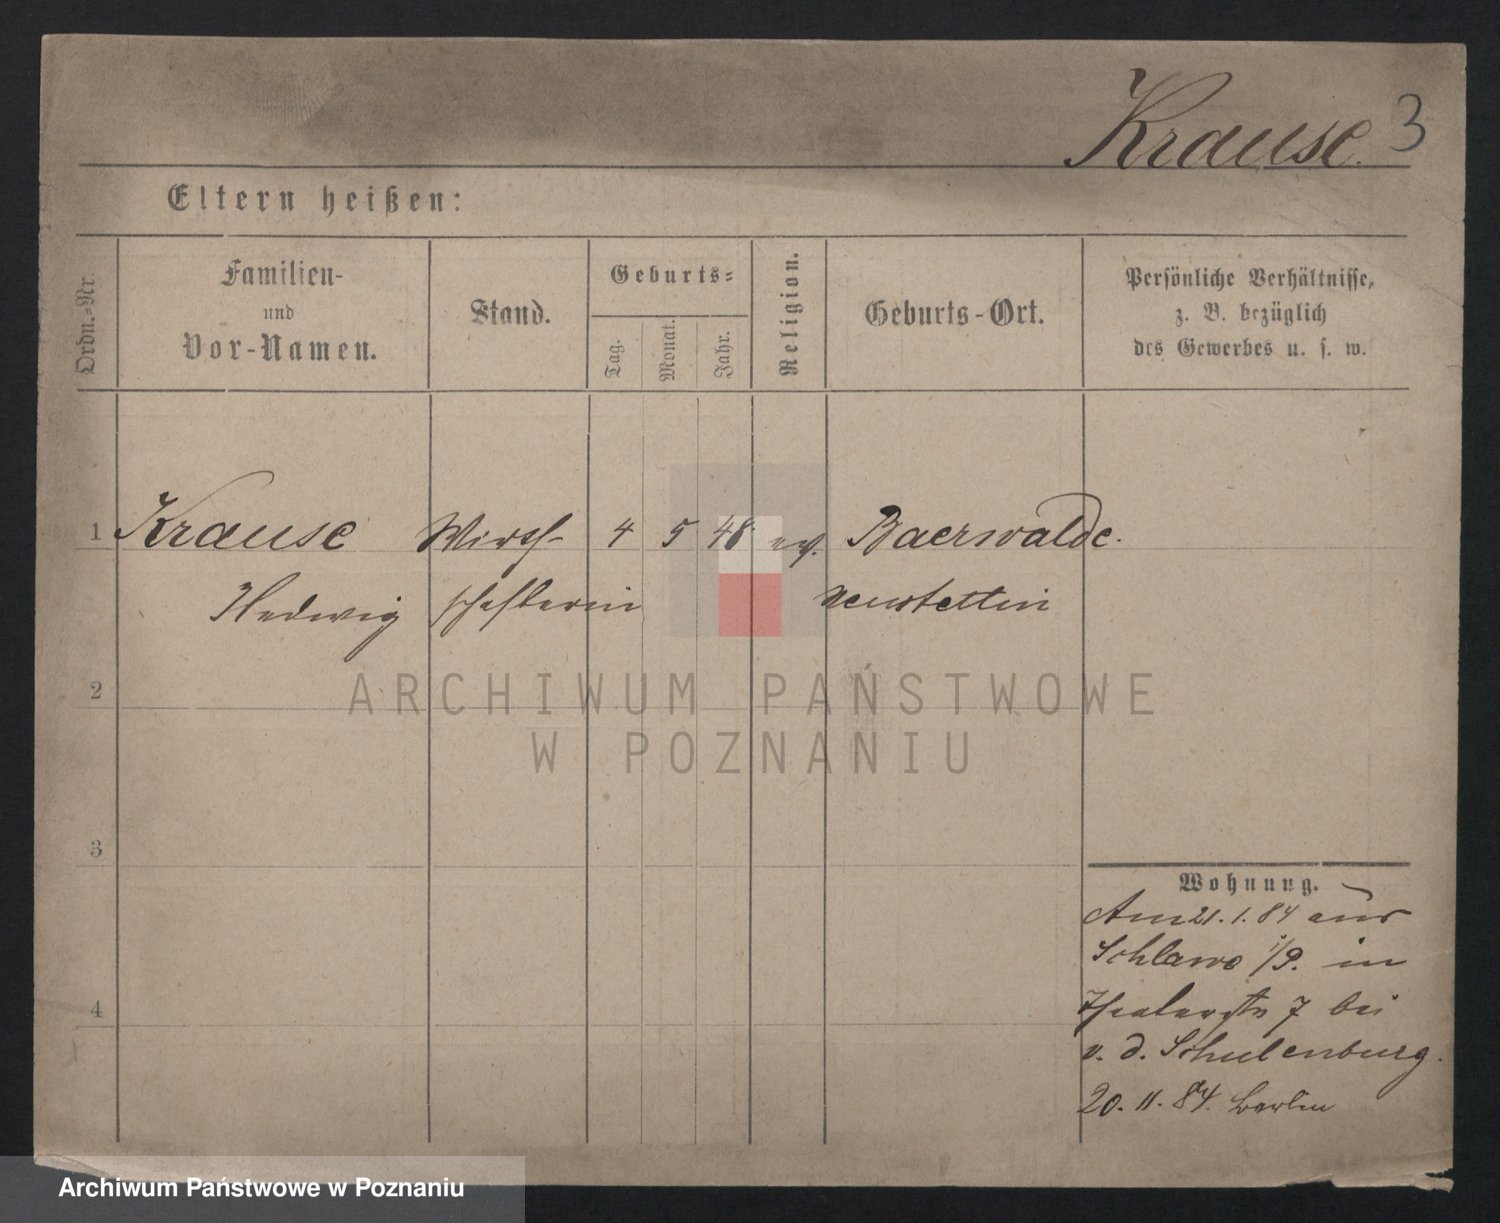 Krause. 3
Eltern heißen:
Ordn.-Nr.
Familien-
und
Vor-Namen.
Stand.
Geburts=
Tag.
Monat.
Jahr.
Religion.
Geburts-Ort.
Persönliche Verhältnisse,
z. B. bezüglich
des Gewerbes u. s. w.
1 Krause Wirth- 4 5 48 ev. Baerwalde.
Hedwig schafterin Neustettin
2
ARCHIWUM PAŃSTWOWE
W POZNANIU
3
4
Wohnung.
Am 21. 1. 84 aus
Schlawe i/P. in
Theaterstr 7 bei
v. d. Schulenburg.
20. 11. 84. Berlin
Archiwum Państwowe w Poznaniu